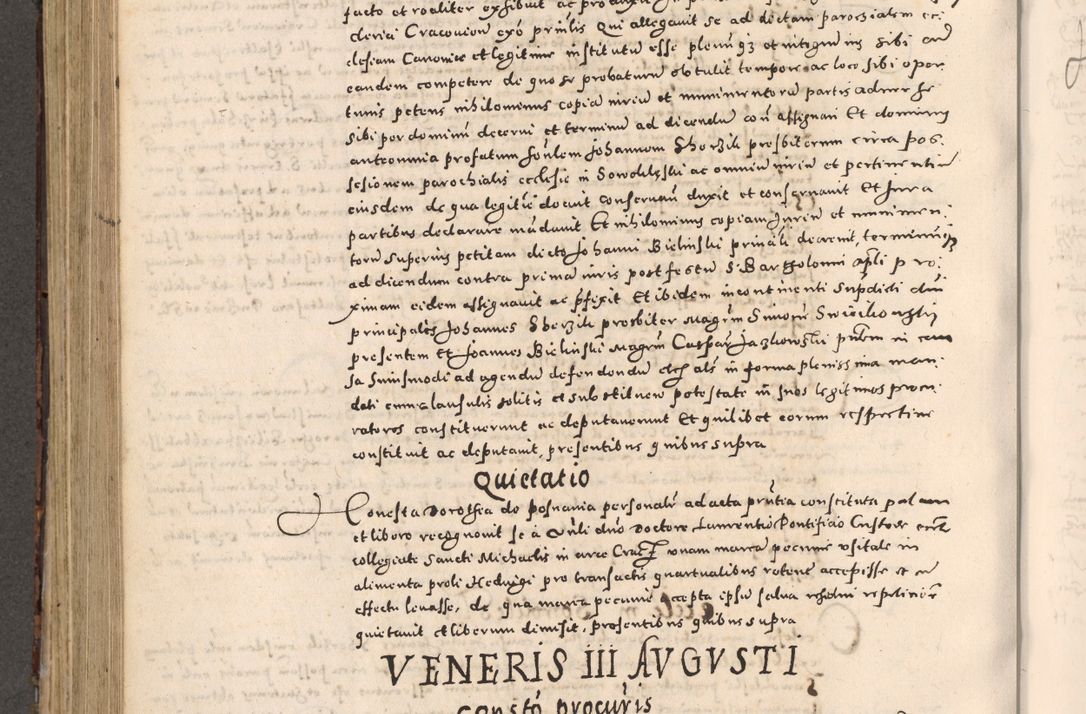 facto et realiter exhibuit ac produxit
clerici Cracovien ex pñtis qui allegavit se ad dictam parochialem eccl
clesiam Canonice et legitime institutū esse plenūqz et integrū ius sibi ad
eandem competere de quo se probaturū obtulit tempore ac loco sibi opor
tunis petens nihilominus copiā iuriū et munimentorū partis adverse
sibi per dominū decerni et terminū ad dicendū con assignari Et dominus
anteomnia prefatum Johannem Sherzik presbiterum circa pos
sesionem parochialis ecclesie in ac omniū iuriū et pertinentiis
eiusdem de qua legitie docuit conservañ duxit et conservavit Et iura
partibus declarare mādavit Et nihilominus copiam Juriū et munimen
torū superius petitam dicto Johanni Bielinski principali decrevit, terminūqz
ad dicendum contra premissa iuris post festū S. Bartholomi apli pro
ximam eidem assignavit ac pfixit Et ibidem incontinenti
principales Johannes Sherzik presbiter Magrm Simonē
presentem Et Joannes Bielinski Magrm Caspar Jazlowski pñtem in cau
sa huiusmodi ad agendū defendendū als in forma plenissima man
dati cum clausulis solitis et substituendi potestate in suos legitimos procu
ratores constituerunt ac deputaverunt Et quilibet eorum respective
constituit ac deputavit, presentibus quibus supra
Quietatio
Honesta Dorothea de Posnania personalr ad acta pñtia constituta palam
et libere recognovit se à dño Doctore Laurentio Pontificio Custode
collegiate Sancti Michaelis in arce Crac unam marcā pecunie usitate in
alimenta proli Hedvigi pro transactis quartualibus ratione accepisse et
effectu levasse, de qua marca pecunie accepta ipsū salva
quietavit et liberum dimisit, presentibus quibus supra
VENERIS III AVGVSTI
Constō procuris